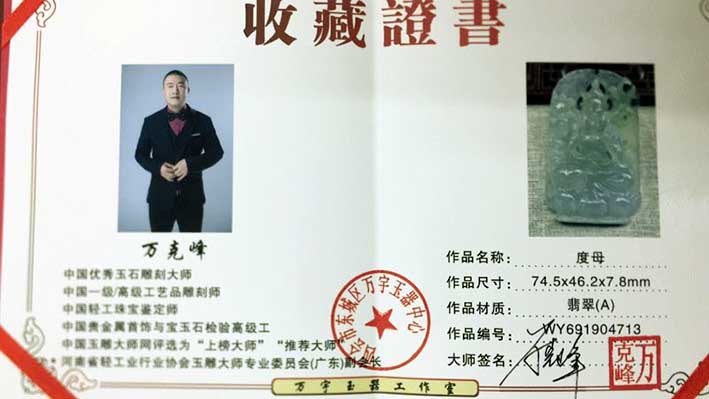 收藏證書
万克峰
中国优秀玉石雕刻大师
中国一级/高级工艺品雕刻师
中国轻工珠宝鉴定师
中国贵金属首饰与宝玉石检验高级工
中国玉雕大师网评选为“上榜大师”“推荐大师”
河南省轻工业行业协会玉雕大师专业委员会(广东)副会长
四会市东城区万字玉器中心
作品名称： 度母
作品尺寸： 74.5x46.2x7.8mm
作品材质： 翡翠(A)
作品编号： WY691904713
大师签名： 万克峰
万克峰
万字玉器工作室